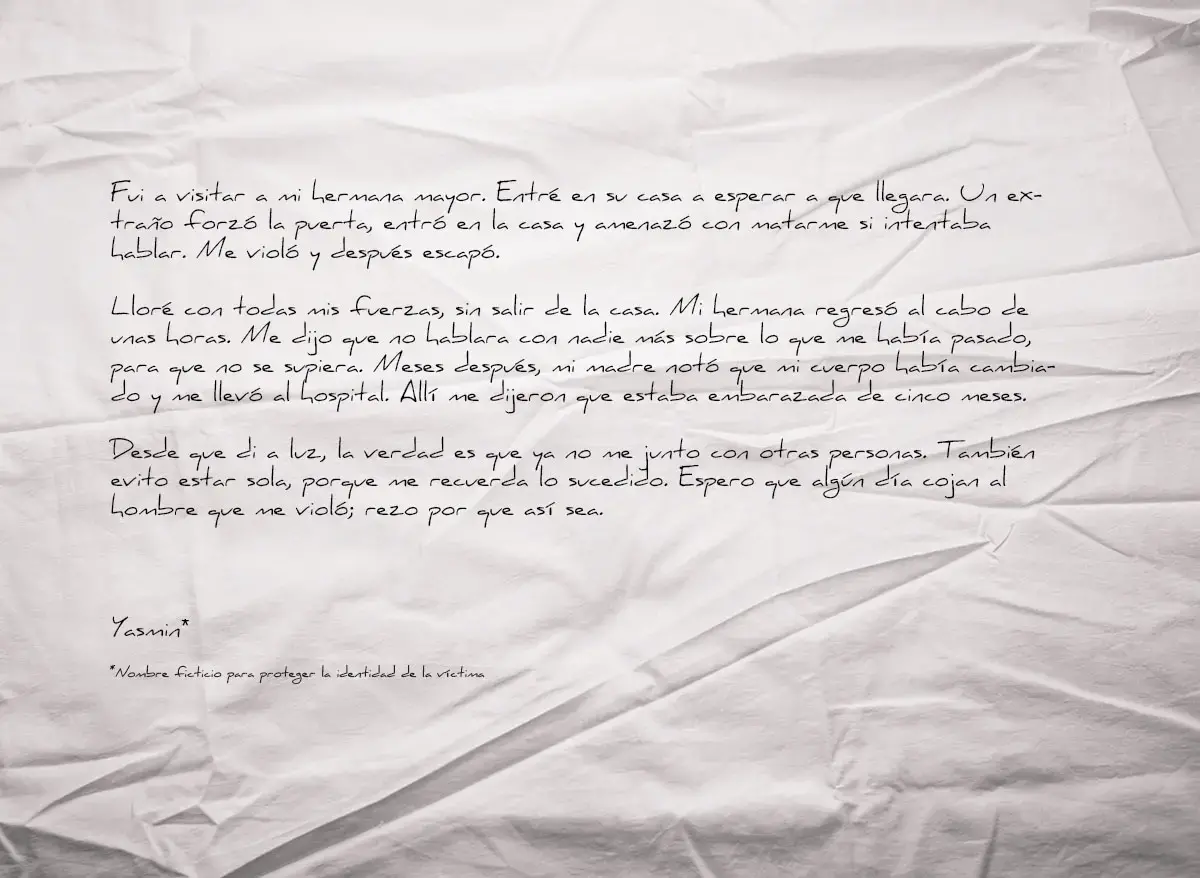 Fui a visitar a mi hermana mayor. Entré en su casa a esperar a que llegara. Un ex-
traño forzó la puerta, entró en la casa y amenazó con matarme si intentaba
hablar. Me violó y después escapó.
Lloré con todas mis fuerzas, sin salir de la casa. Mi hermana regresó al cabo de
unas horas. Me dijo que no hablara con nadie más sobre lo que me había pasado,
para que no se supiera. Meses después, mi madre notó que mi cuerpo había cambia-
do y me llevó al hospital. Allí me dijeron que estaba embarazada de cinco meses.
Desde que di a luz, la verdad es que ya no me junto con otras personas. También
evito estar sola, porque me recuerda lo sucedido. Espero que algún día cojan al
hombre que me violó; rezo por que así sea.
Yasmin*
*Nombre ficticio para proteger la identidad de la víctima